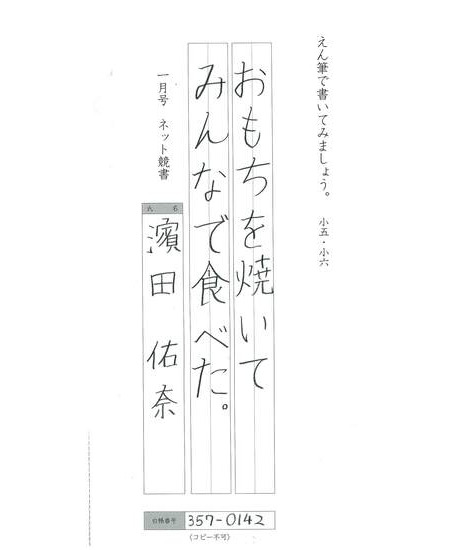 えん筆で書いてみましょう。　小五・小六
おもちを焼いて
みんなで食べた。
一月号　ネット競書
氏名
濱田　佑奈
台帳番号 357-0142
(コピー不可)